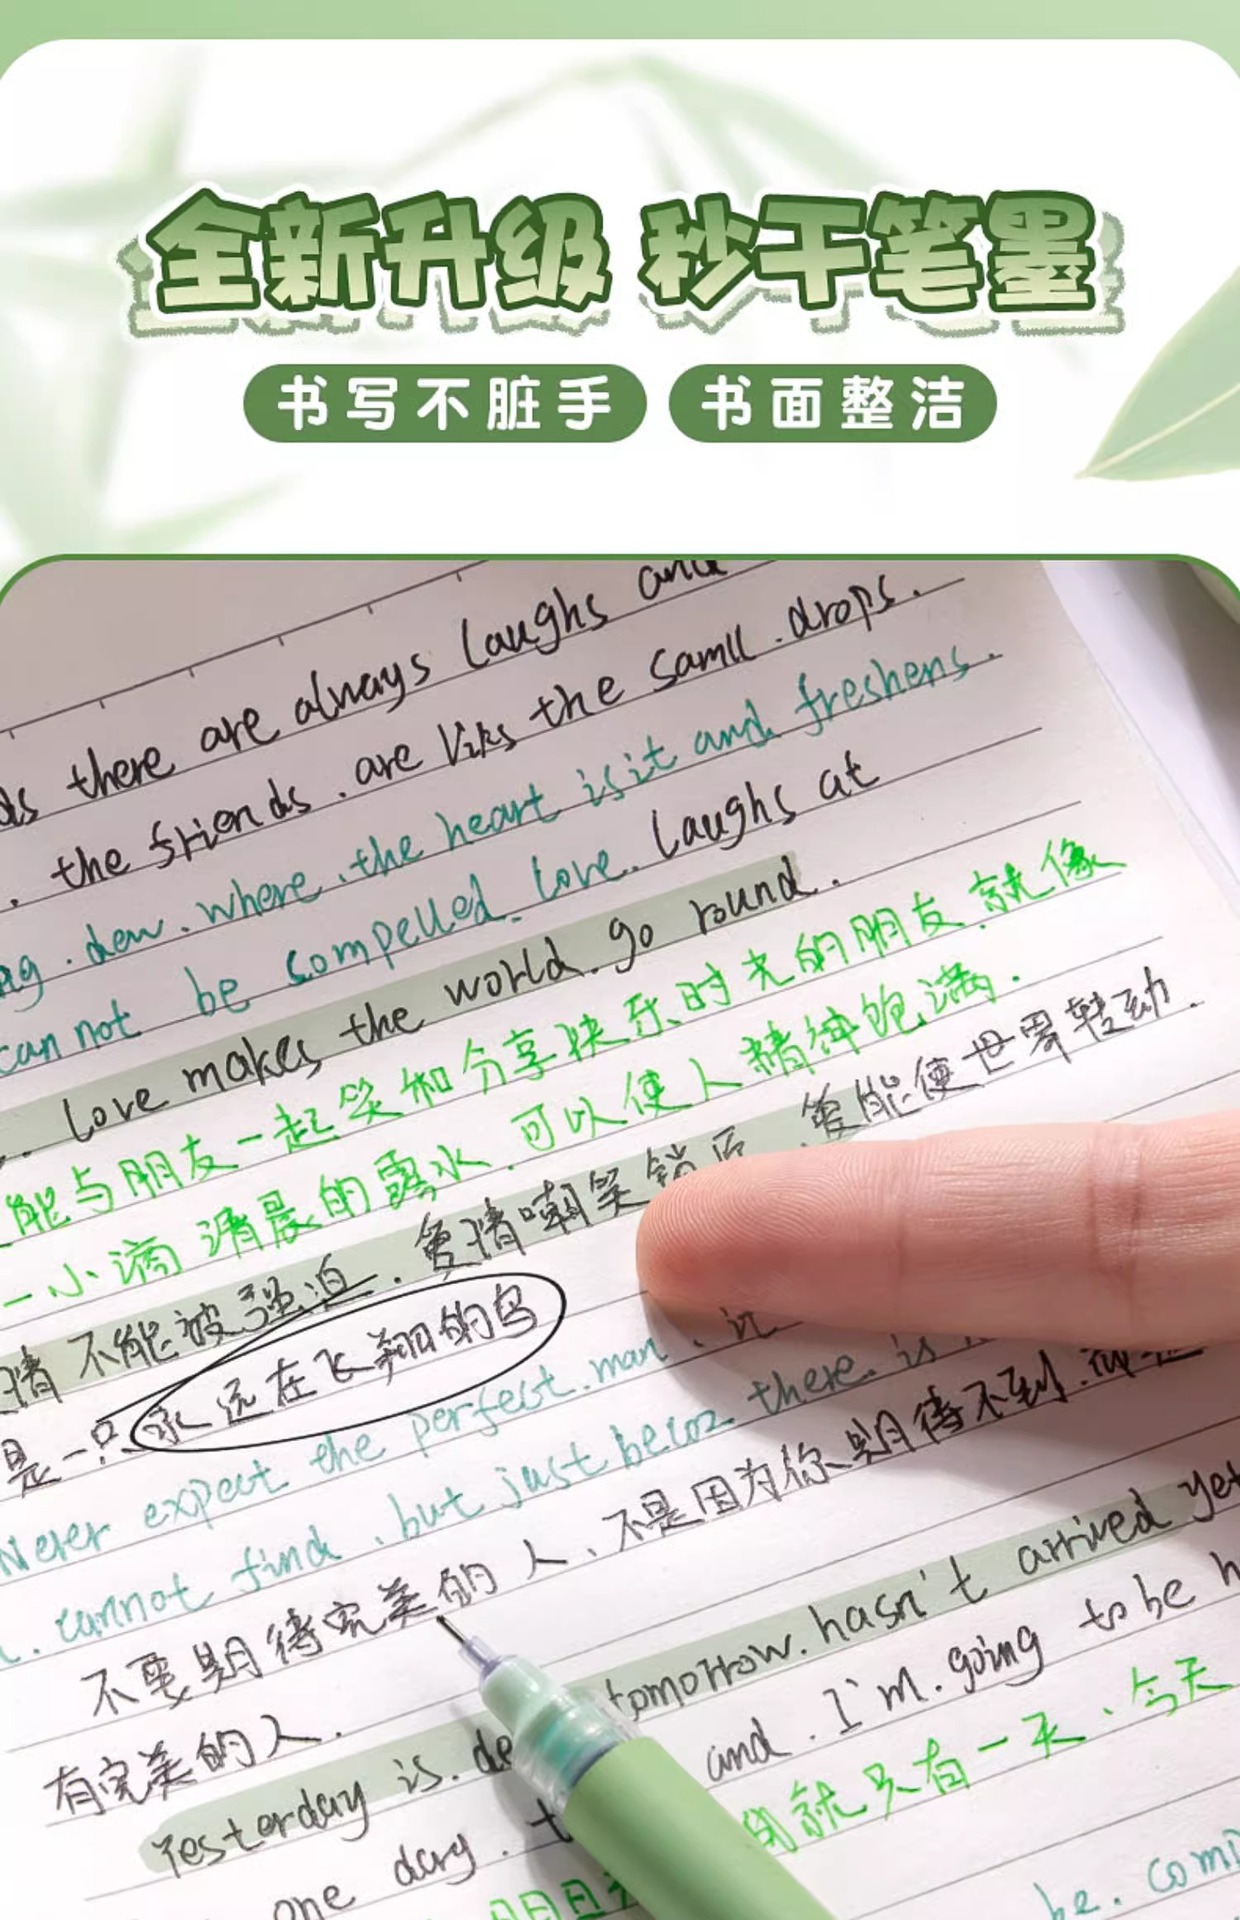 全新升级 秒干笔墨
书写不脏手 书面整洁
there are always laughs and
the friends. are the samll. drops.
dew. where. the heart is it and freshens.
can not be compelled. love. laughs at
love makes the world. go round.
能与朋友一起笑和分享快乐时光的朋友.就像
一小滴清晨的露水.可以使人精神饱满.
情不能被强迫.爱情嘲笑锁匠.爱能使世界转动.
是一只永远在飞翔的鸟
Never expect the perfect. man.
cannot find. but just there. is
不要期待完美的人、不是因为你期待不到.
有完美的人.
Yesterday is. tomorrow. hasn't arrived yet
one day. and. I'm. going to be
就只有一天、今天
be. com